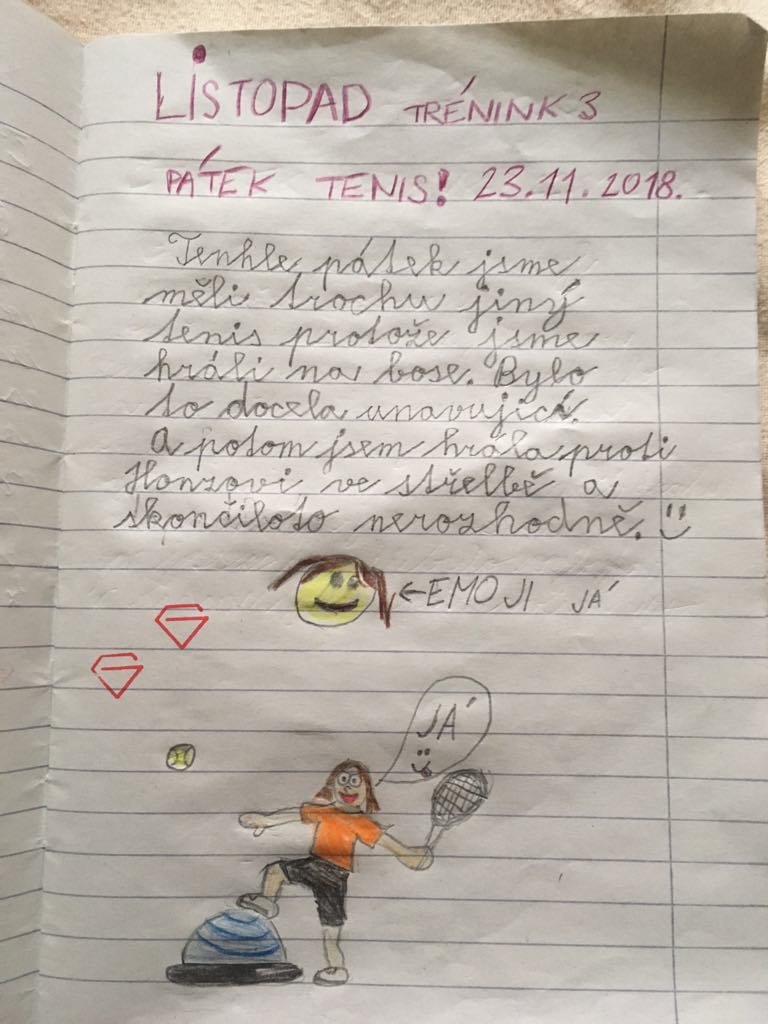 LISTOPAD TRÉNINK 3
PÁTEK TENIS! 23.11.2018.
Tenhle pátek jsme
měli trochu jiný
tenis protože jsme
hráli na bose. Bylo
to docela unavující.
A potom jsem hrála proti
Honzovi ve střelbě a
skončiloto nerozhodně.
←EMOJI JÁ
JÁ